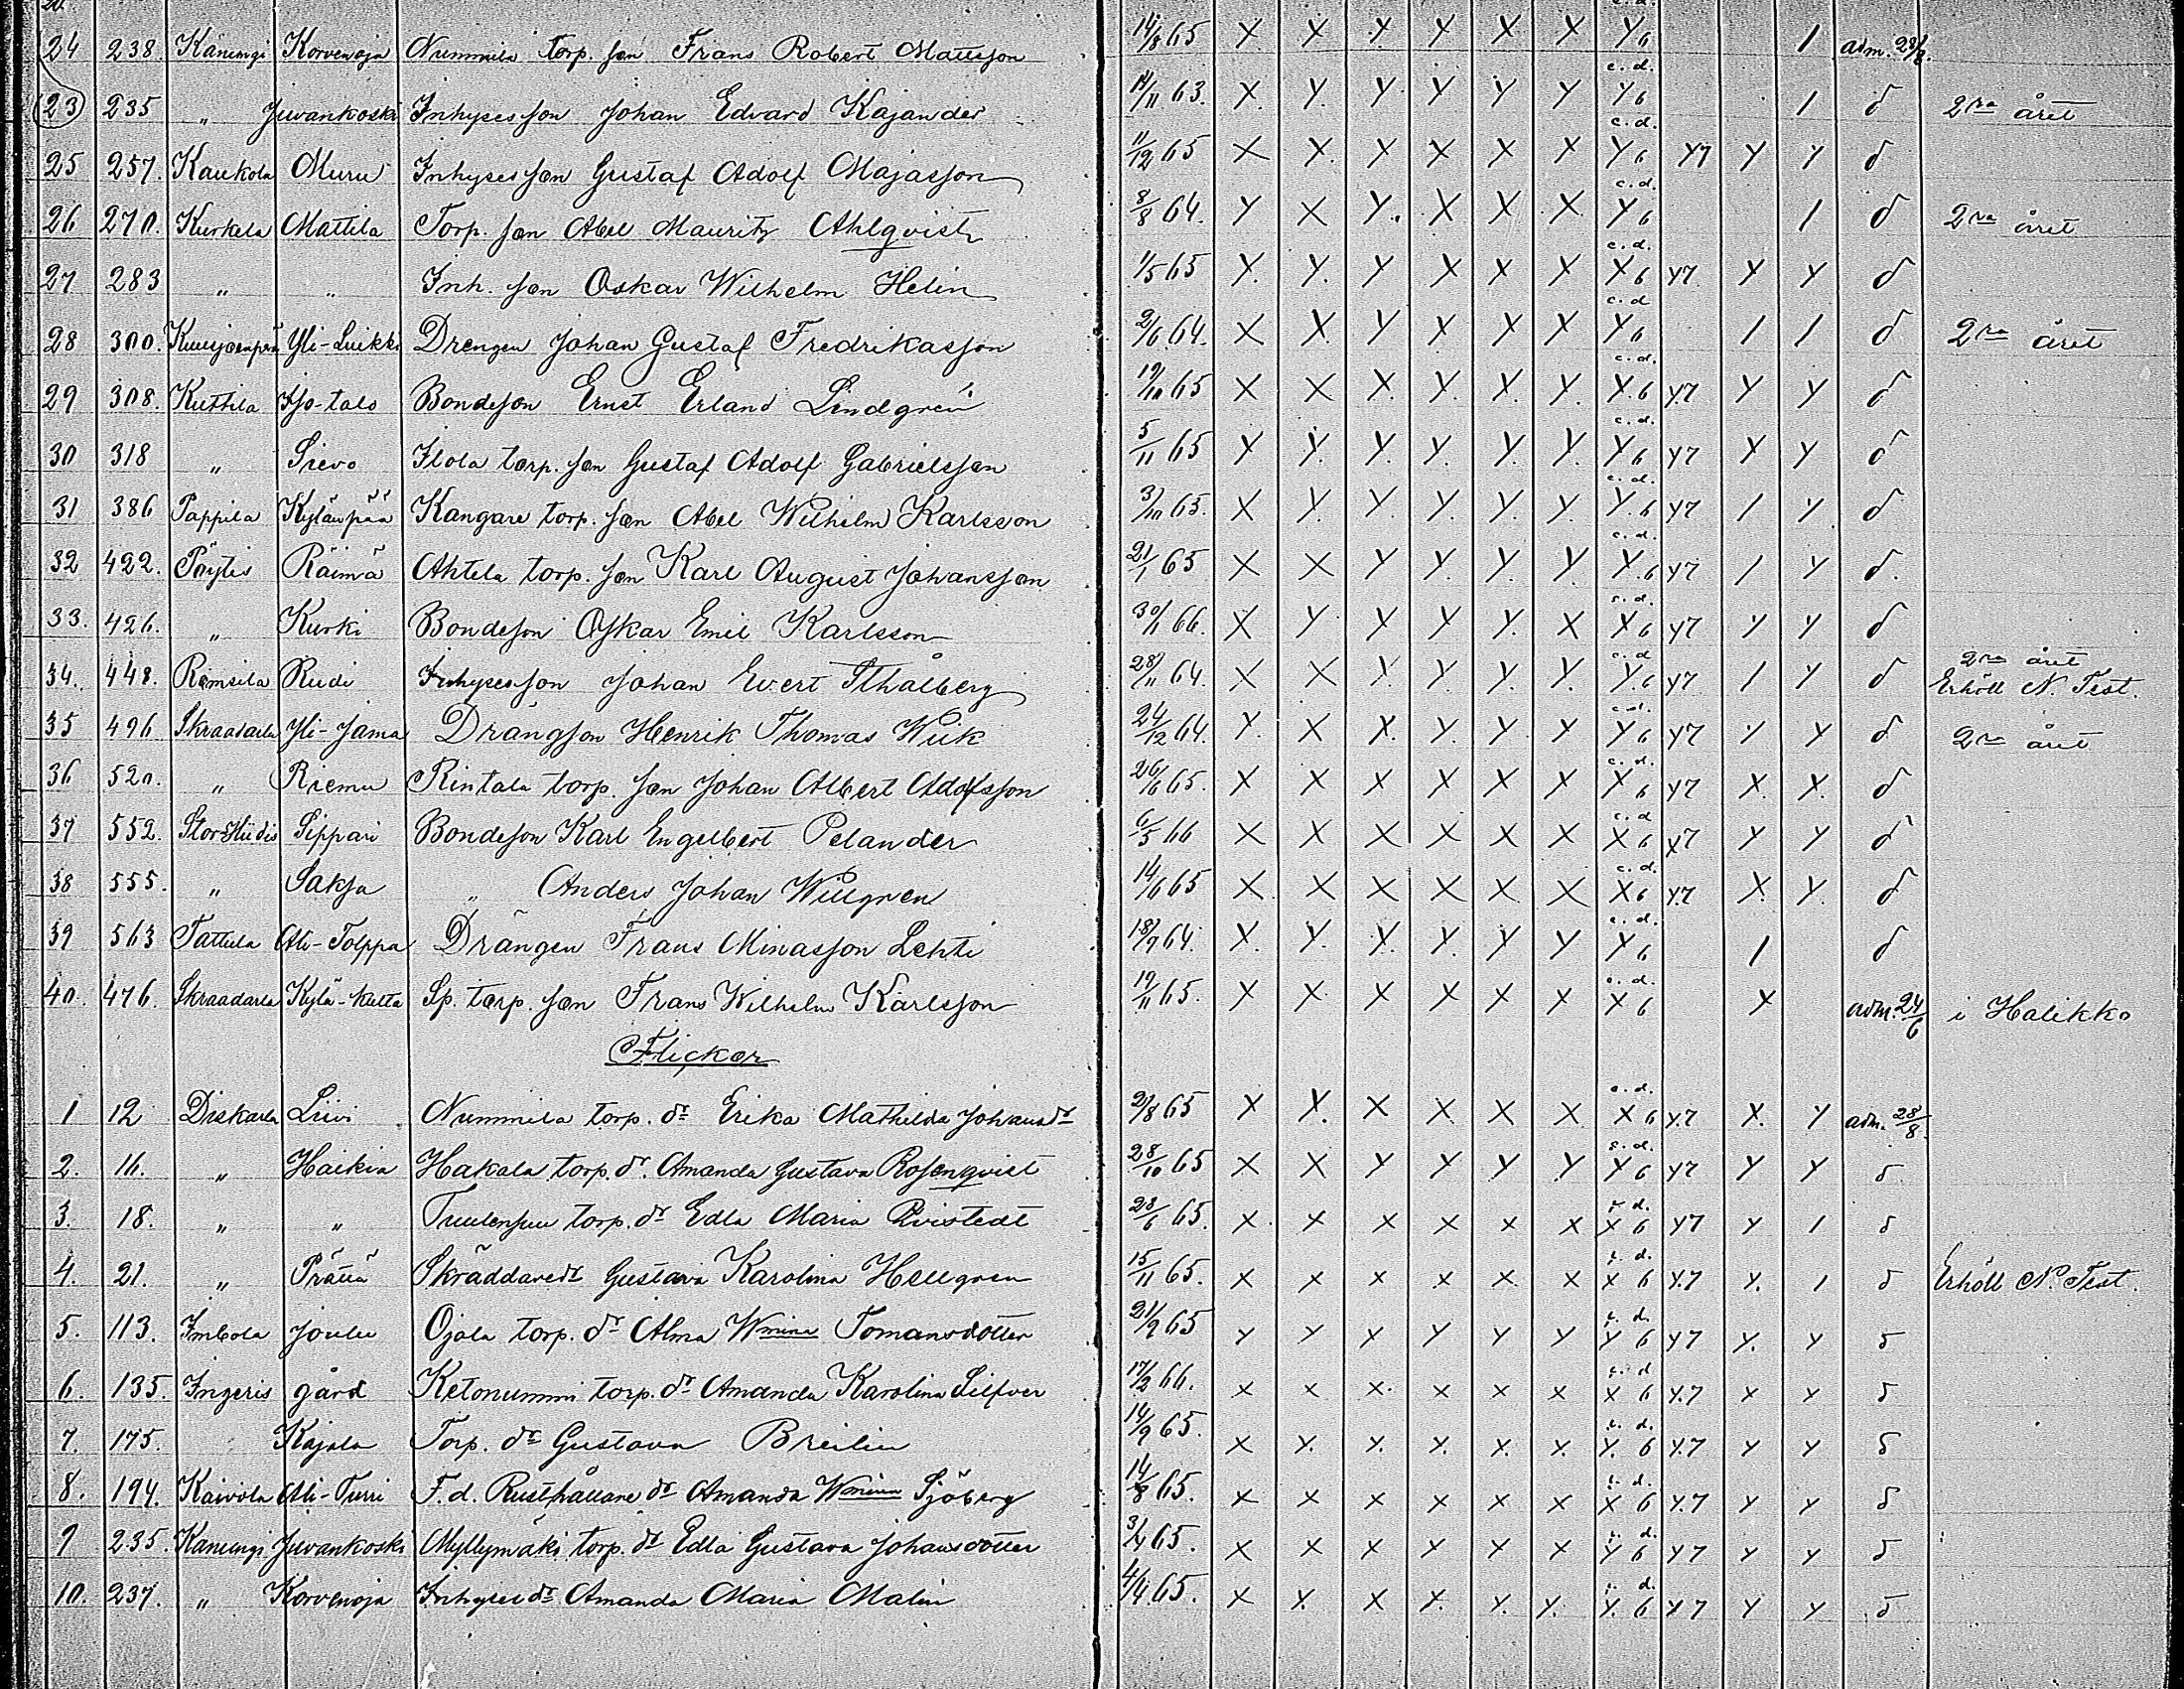 24 238. Kanungi Korvenoja Nummila torp. son Frans Robert Mattsson 14/8 65 X X X Y X X Y6 1 adm. 28/8.
23 235 " Juvankoski Inhyses son Johan Edvard Kajander 14/11 63. X. Y. Y Y Y Y c.d. Y6 1 d 2ra året
25 257. Kaukola Muru Inhyses son Gustaf Adolf Majasson 11/12 65 X X. X X X X c.d. Y6 Y7 Y Y d
26 270. Kurkela Mattila Torp. son Abel Mauritz Ahlqvist 8/8 64. Y X Y. X X X. c.d. Y6 1 d 2ra året
27 283 " " Inh. son Oskar Wilhelm Helin 1/5 65 Y. Y. Y X X X c.d. X6 Y7. Y Y d
28 300. Yli-Luikki Drengen Johan Gustaf Fredrikasson 2/6 64. X X. Y X X X c.d Y6 1 1 d 2ra året
29 308. Kuttila Iso-talo Bondeson Ernst Erland Lindgren 19/10 65 X X X. Y. Y. Y. c.d. X.6 Y.7 Y Y d
30 318 " Sievo Ilola torp. son Gustaf Adolf Gabrielsson 5/11 65 X Y. Y. Y. Y. Y. c.d. Y6 Y7 X Y d
31 386 Pappila Kylänpää Kangare torp. son Abel Wilhelm Karlsson 3/10 65. X Y. Y. Y. Y. Y. c.d. Y.6 Y7 1 Y d
32 422. Pöytis Räimä Ahtela torp. son Karl August Johansson 21/1 65 X X Y Y. Y. Y c.d. Y.6 Y7 1 Y d.
33. 426. " Kurki Bondeson Oskar Emil Karlsson 30/1 66. X Y Y Y Y. X c.d. X6 Y7 Y Y d
34. 448. Romsila Rudi Inhyses son Johan Evert Sthålberg 28/11 64. X X Y Y Y. Y. c.d Y.6 Y7 1 Y d 2ra året Erhöll N. Test.
35 496 Skraadarla Yli-Jama Drängson Henrik Thomas Wiik 24/12 64. Y. X X. Y. Y. X c.d. Y6 Y7 Y Y d 2ra året
36 520. " Riemu Rintala torp. son Johan Albert Adolfsson 26/6 65. X X X X X X c.d. X6 Y7 X. X. d
37 552. Stor-Hiidis Sippari Bondeson Karl Engelbert Pelander 6/5 66 X X X X X X c.d X6 Y7 Y Y d
38 555. " Saksa " Anders Johan Willgren 14/6 65 X X X X X X c.d. X6 Y.7 X. Y. d
39 563 Tattula Ali-Tolppa Drängen Frans Minasson Lehti 18/9 64. X. Y. Y. Y. Y Y c.d. Y6 1 d
40. 476. Skraadarla Kylä-Kutta Sp. torp. son Frans Wilhelm Karlsson 19/11 65. X X. X X X X c.d. X6 X adm. 24/6 i Halikko
Flickor
1 12 Diskarla Liivi Nummila torp. dr Erika Mathilda Johansdr 21/8 65 X X. X X X X c.d. X6 Y.7 X. Y adm. 28/8.
2. 16. " Haikia Hakala torp. dr. Amanda Gustava Rosenqvist 28/10 65 X X Y Y Y Y c.d. Y6 Y7 Y Y d
3. 18. " " Tuulensuu torp. dr Edla Maria Qvistedt 28/6 65. X X X X X X c.d. X6 Y7 Y 1 d
4. 21. " Prättä Skräddaredr Gustava Karolina Hellgren 15/11 65. X X X X X X c.d. X6 Y.7 Y. 1 d Erhöll N. Test.
5. 113. Imbola Joulu Ojala torp. dr Alma Wmina Tomansdotter 21/9 65 Y Y X Y Y Y c.d. Y6 Y7 Y. Y d
6. 135. Ingeris gård Ketonummi torp. dr Amanda Karolina Silfver 17/2 66. X X X. X X X c.d X6 Y.7 X X d
7. 175. Kajala Torp. dr Gustava Breilin 14/9 65. X Y. Y. Y. X. X. c.d. Y.6 Y.7 Y Y d
8. 194. Kaivola Ali-Turri F.d. Rusthållare dr Amanda Wmina Sjöberg 14/8 65. X X X X X X c.d. X6 Y.7 Y Y d
9 235. Kanungi Juvankoski Myllymäki torp. dr Edla Gustava Johansdotter 3/4 65. X X X X X X c.d. Y6 Y7 Y Y d
10. 237. " Korvenoja Inhyses dr Amanda Maria Malin 4/4 65. X X. X X. X. Y. c.d. Y.6 X7 Y Y d